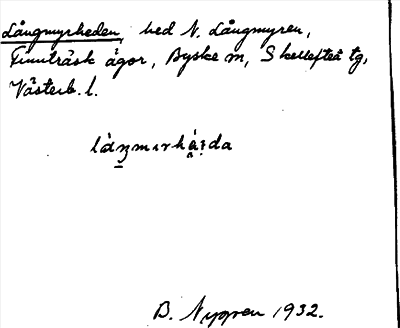 Långmyrheden, hed N. Långmyren,
Finnträsk ägor, Byske sn, Skellefteå tg,
Västerb. l.
B. Nygren 1932.